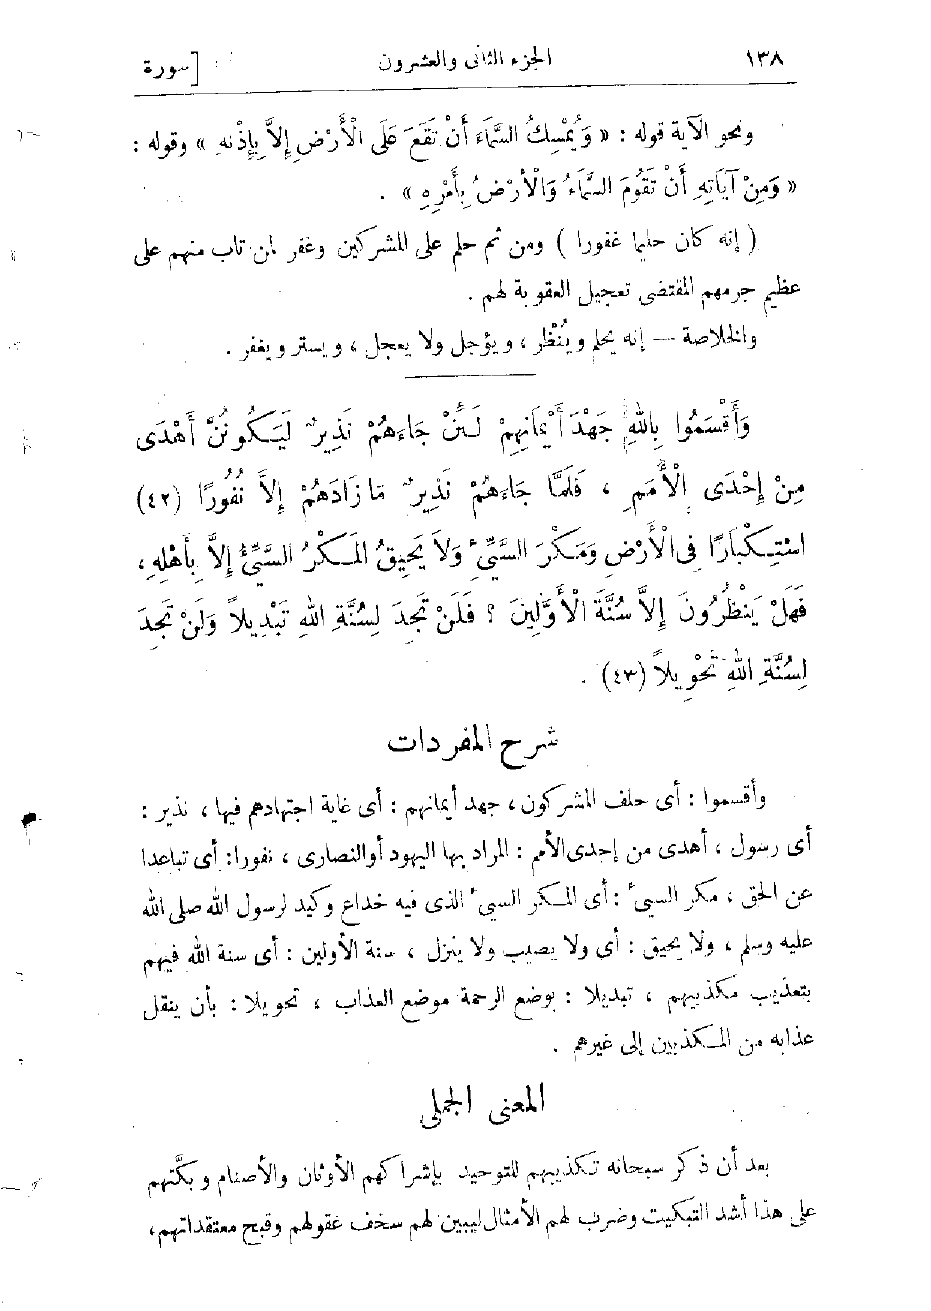 ١٣٨ الجزء الثانى والعشرون [سورة
ونحو الآية قوله : « وَيُمْسِكُ السَّمَاءَ أَنْ تَقَعَ عَلَى الْأَرْضِ إِلاَّ بِإِذْنِهِ » وقوله :
« وَمِنْ آيَاتِهِ أَنْ تَقُومَ السَّمَاءُ وَالْأَرْضُ بِأَمْرِهِ » .
( إنه كان حليما غفورا ) ومن ثم حلم على المشركين وغفر لمن تاب منهم على
عظيم جرمهم المقتضى تعجيل العقوبة لهم .
والخلاصة — إنه يحلم ويُنْظر ، ويؤجل ولا يعجل ، ويستر ويغفر .
وَأَقْسَمُوا بِاللهِ جَهْدَ أَيْمَانِهِمْ لَئِنْ جَاءَهُمْ نَذِيرٌ لَيَكُونُنَّ أَهْدَى
مِنْ إِحْدَى الْأُمَمِ ، فَلَمَّا جَاءَهُمْ نَذِيرٌ مَا زَادَهُمْ إِلاَّ نُفُورًا (٤٢)
اسْتِكْبَارًا فِى الْأَرْضِ وَمَكْرَ السَّيِّئِ وَلاَ يَحِيقُ الْمَكْرُ السَّيِّئُ إِلاَّ بِأَهْلِهِ ،
فَهَلْ يَنْظُرُونَ إِلاَّ سُنَّةَ الْأَوَّلِينَ ؟ فَلَنْ تَجِدَ لِسُنَّةِ اللهِ تَبْدِيلاً وَلَنْ تَجِدَ
لِسُنَّةِ اللهِ تَحْوِيلاً (٤٣) .
شرح المفردات
وأقسموا : أى حلف المشركون ، جهد أيمانهم : أى غاية اجتهادهم فيها ، نذير :
أى رسول ، أهدى من إحدى الأمم : المراد بها اليهود أو النصارى ، نفورا : أى تباعدا
عن الحق ، مكر السيئ : أى المكر السيئ الذى فيه خداع وكيد لرسول الله صلى الله
عليه وسلم ، ولا يحيق : أى ولا يصيب ولا ينزل ، سنة الأولين : أى سنة الله فيهم
بتعذيب مكذبيهم ، تبديلا : بوضع الرحمة موضع العذاب ، تحويلا : بأن ينقل
عذابه من المكذبين إلى غيرهم .
المعنى الجملى
بعد أن ذكر سبحانه تكذيبهم للتوحيد بإشراكهم الأوثان والأصنام وبكَّتهم
على هذا أشد التبكيت وضرب لهم الأمثال ليبين لهم سخف عقولهم وقبح معتقداتهم ،